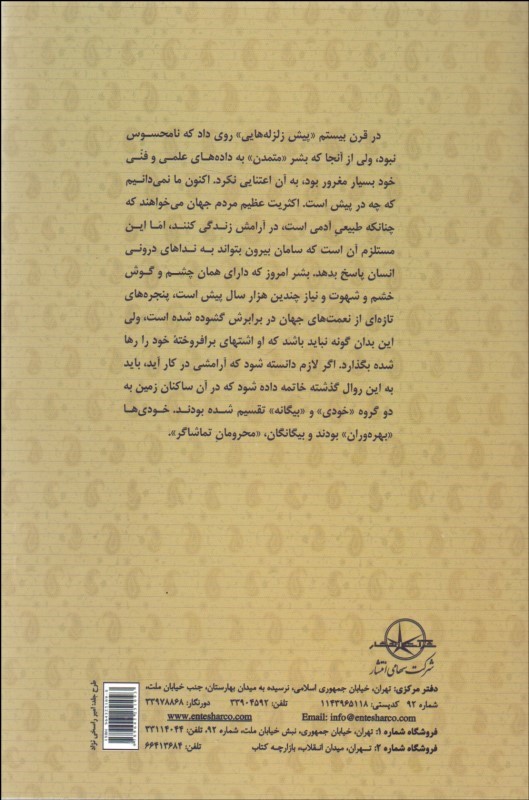 در قرن بیستم «پیش زلزله‌هایی» روی داد که نامحسوس
نبود، ولی از آنجا که بشر «متمدن» به داده‌های علمی و فنّی
خود بسیار مغرور بود، به آن اعتنایی نکرد. اکنون ما نمی‌دانیم
که چه در پیش است. اکثریت عظیم مردم جهان می‌خواهند که
چنانکه طبیعیِ آدمی است، در آرامش زندگی کنند، امّا این
مستلزم آن است که سامان بیرون بتواند به نداهای درونی
انسان پاسخ بدهد. بشر امروز که دارای همان چشم و گوش
خشم و شهوت و نیاز چندین هزار سال پیش است، پنجره‌های
تازه‌ای از نعمت‌های جهان در برابرش گشوده شده است، ولی
این بدان گونه نباید باشد که او اشتهای برافروختهٔ خود را رها
شده بگذارد. اگر لازم دانسته شود که آرامشی در کار آید، باید
به این روال گذشته خاتمه داده شود که در آن ساکنان زمین به
دو گروه «خودی» و «بیگانه» تقسیم شده بودند. خودی‌ها
«بهره‌وران» بودند و بیگانگان، «محرومانِ تماشاگر».
شرکت سهامی انتشار
دفتر مرکزی: تهران، خیابان جمهوری اسلامی، نرسیده به میدان بهارستان، جنب خیابان ملت،
شماره ۹۲ کدپستی: ۱۱۴۳۹۶۵۱۱۸ تلفن: ۳۳۹۰۴۵۹۲ دورنگار: ۳۳۹۷۸۸۶۸
Email: info@entesharco.com www.entesharco.com
فروشگاه شماره ۱: تهران، خیابان جمهوری، نبش خیابان ملت، شماره ۹۲، تلفن: ۳۳۱۱۴۰۴۴
فروشگاه شماره ۲: تهران، میدان انقلاب، بازارچه کتاب تلفن: ۶۶۴۱۳۶۸۴
طرح جلد: امیر راسخی نژاد